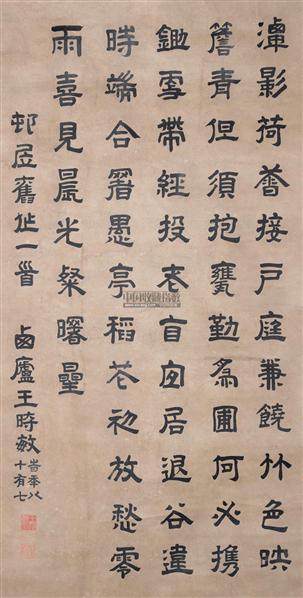 潭影荷香接戶庭兼饒竹色映
簷青但須抱甕勤為圃何必攜
鋤更帶經投老自宜居退谷違
時端合署愚亭稻花初放愁零
雨喜見晨光粲曙星
邨居舊作一首 西廬王時敏
旹年八
十有七
中国收藏指数